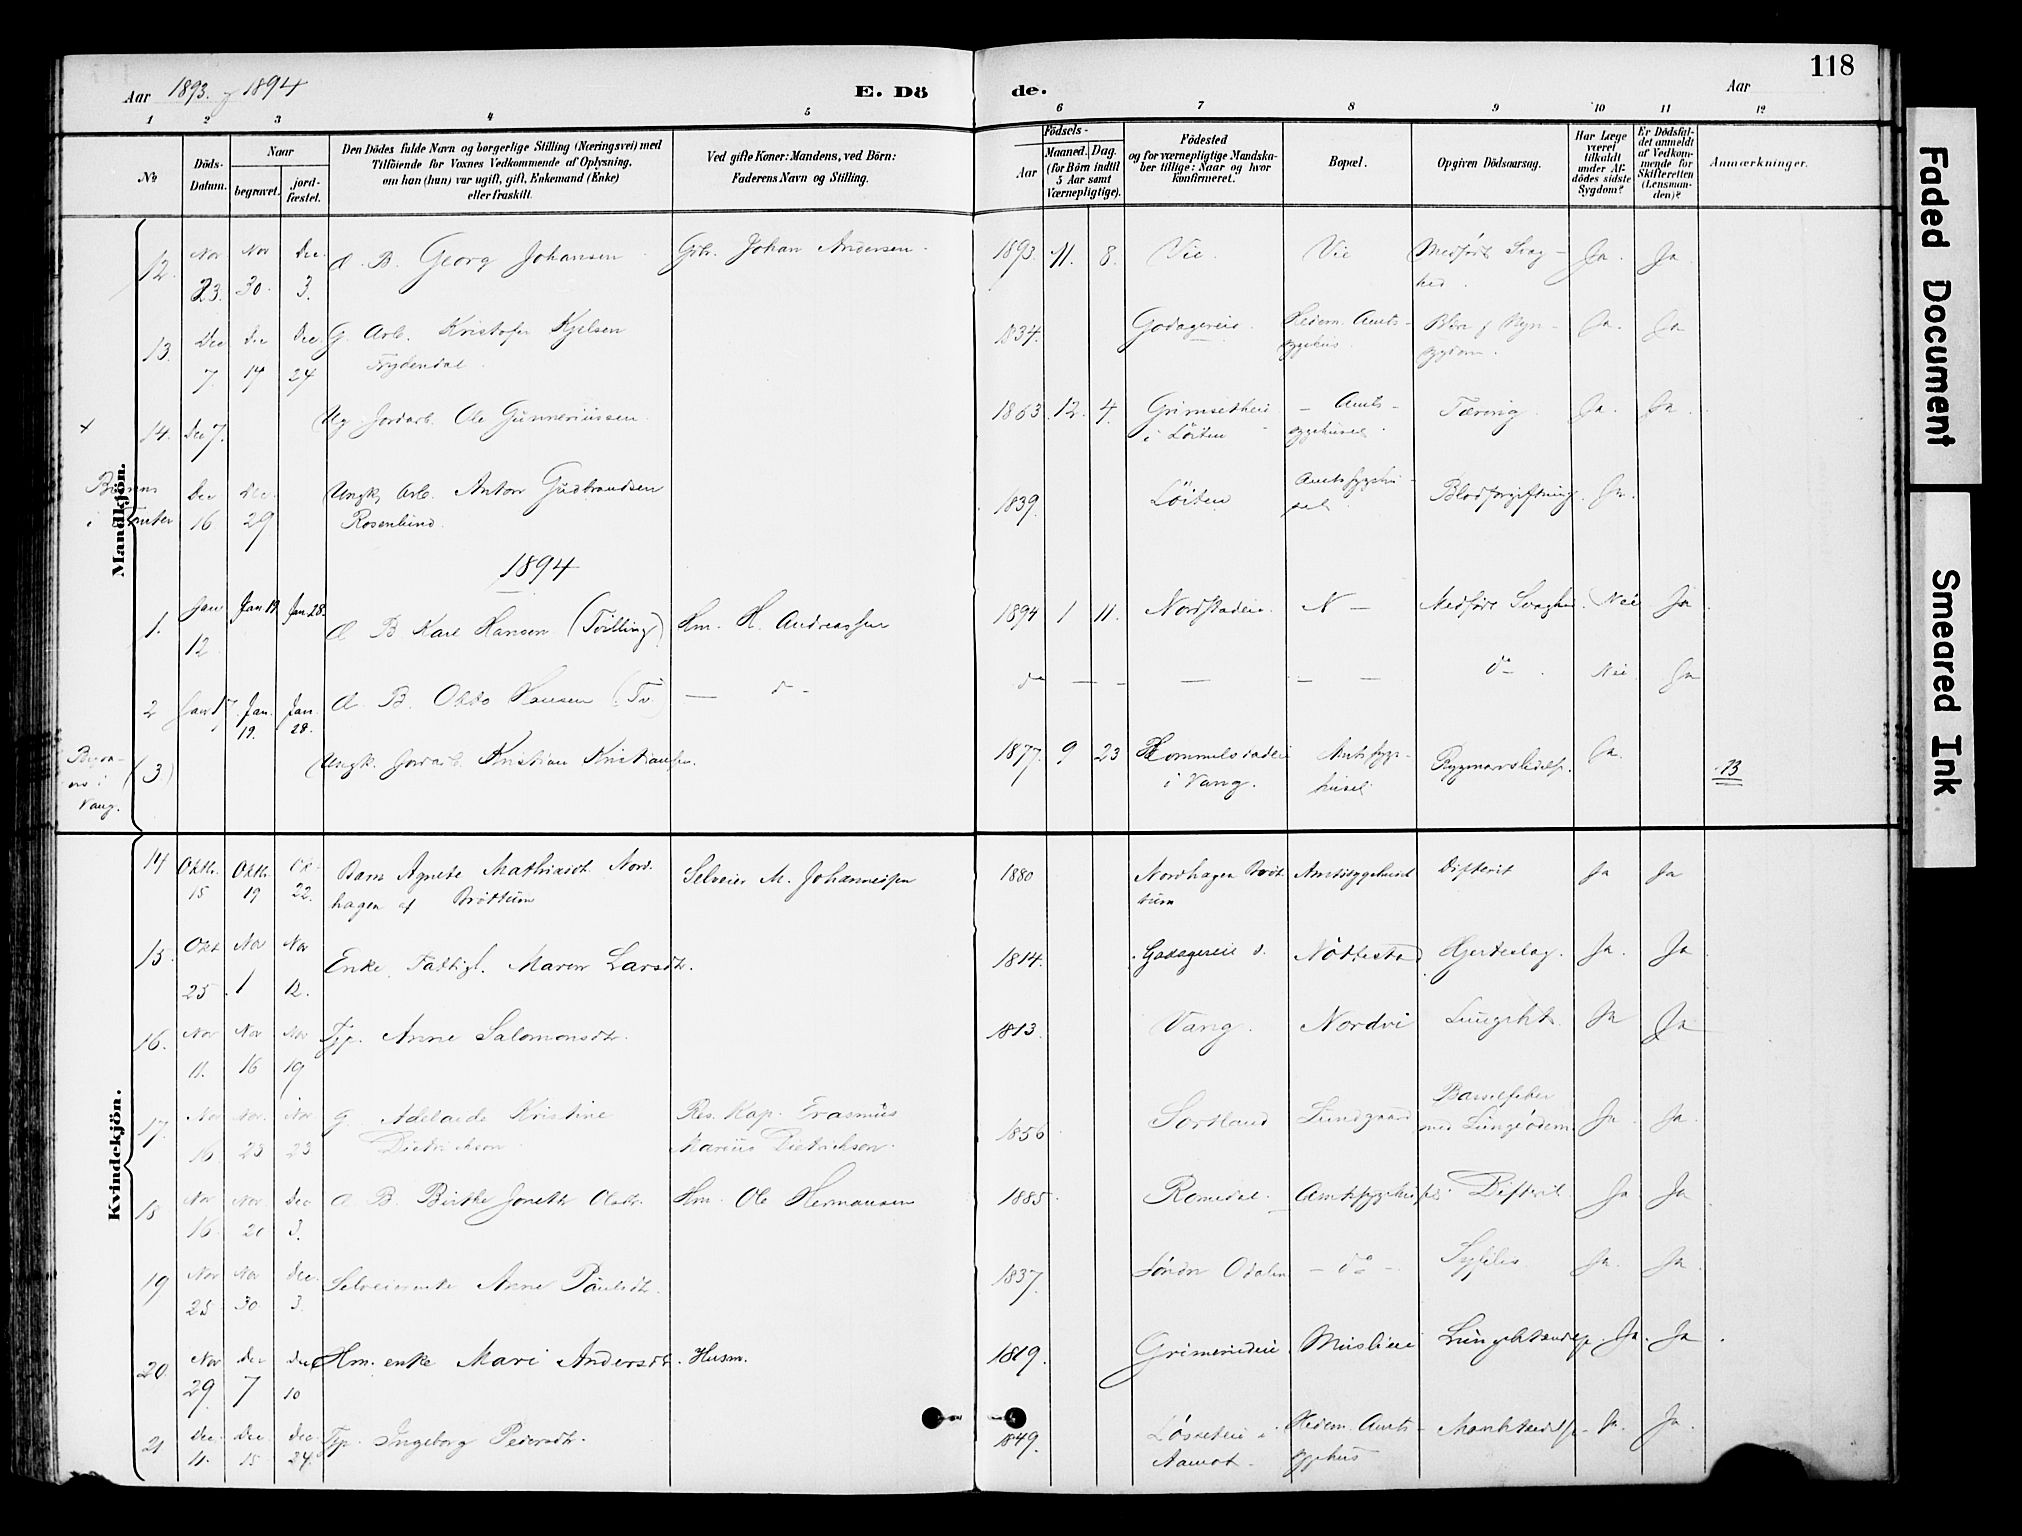 118
Aar 1893. og 1894
E. Dö
de.
Aar
1 2 3 4 5 6 7 8 9 10 11 12
No
Döds-
Datum.
Naar
begravet.
jord-
fæstet.
Den Dödes fulde Navn og borgerlige Stilling (Næringsvei) med
Tilföiende for Voxnes Vedkommende af Oplysning,
om han (hun) var ugift, gift, Enkemand (Enke)
eller fraskilt.
Ved gifte Koner: Mandens, ved Börn:
Faderens Navn og Stilling.
Födsels-
Aar
Maaned.
Dag.
(for Börn indtil
5 Aar samt
Værnepligtige).
Födested
og for værnepligtige Mandska-
ber tillige: Naar og hvor
konfirmeret.
Bopæl.
Opgiven Dödsaarsag.
Har Læge
været
tilkaldt
under Af-
dödes sidste
Sygdom?
Er Dödsfal-
det anmeldt
af Vedkom-
mende for
Skifteretten
(Lensman-
den)?
Anmærkninger.
Mandkjön.
12. Nov 23. Nov 30. Dec. 3. B. Georg Johansen Gbr. Johan Andersen. 1893. 11. 8. Vie. Vie Medfødt Svag-
hed. Ja. Ja.
13. Dec 7. Dec 14 Dec 24 G. Arb. Kristofer Kjelsen
Frydendal. 1834. Godagereie. Hedem. Amts-
sygehus. Ja. Ja
+ 14. Dec 7. Ug. Jordarb. Ole Gunneriussen. 1863. 12. 4. Grimsetheie
i Löiten - Amts-
sygehuset. Tæring Ja. Ja.
Dec 16 Dec. 29 Ungk. Arb. Anton Gudbrandsen
Rosenlund. 1839. Löiten Amtssygehu-
set. Blodforgiftning. Ja.
1894
1. Jan 12 Jan 19. Jan. 28. B Karl Hansen (Tvilling) Hm. H. Andreassen 1894 1 11. Nordstadeie. N - Medfødt Svaghed. Nei Ja.
2 Jan 17. Jan. 19. Jan. 28. B. Otto Hansen (Tv.) - do - do - - - - do. Nei Ja
i
Vang.
(3) Ungk. Jordarb. Kristian Kristiansen. 1877. 9 23 Hommelstadeie
i Vang. Amtssyge-
huset Rygmarvslidelse. Ja. 13
Kvindekjön.
14 Oktbr. 15 Oktbr. 19 Ok- 22. Barn Agnete Mathiasdt. Nord-
hagen af Bröttum Selveier M. Johannessen 1880 Nordhagen Bröt-
tum Amtssygehuset Difterit Ja Ja
15. Okt 25 Nov 1 Nov 12. Enke, Fattigl. Maren Larsdtr. 1814. Godagereie Nöttestad Hjerteslag. Ja. Ja.
16. Nov 11. Nov 16 Nov 19 Tjp. Anne Salomonsdtr. 1813. Vang. Nordvi Ja Ja
17. Nov 16 Nov. 23 Nov 23 G. Adelaide Kristine
Dietrichson Res. Kap. Erasmus
Marius Dietrichson. 1856. Sortland Lundgaard Barselfeber
med Lungeödem Ja. Ja.
18 Nov 16 Nov. 20 Dec 3. B. Birthe Jonette Olsdtr. Hm. Ole Hermansen 1885. Romedal. Amtssygehuset Difterit. Ja Ja
19 Nov 25 Nov 30 Dec. 3. Selveierenke Anne Paulsdtr. 1837. Söndr. Odalen - do - Syfilis. Ja. Ja.
20. Nov 29. Dec 7 Dec 10 Hm. enke Mari Andersdtr. Husm. 1819. Muslieie Ja. Ja.
21 Dec. 11. Dec. 15 Dec. 24. Tjp. Ingeborg Pedersdtr. 1849. Lösseteie i
Aamot. Hedem. Amts-
sygehus Ja. Ja.
Faded Document
Smeared Ink